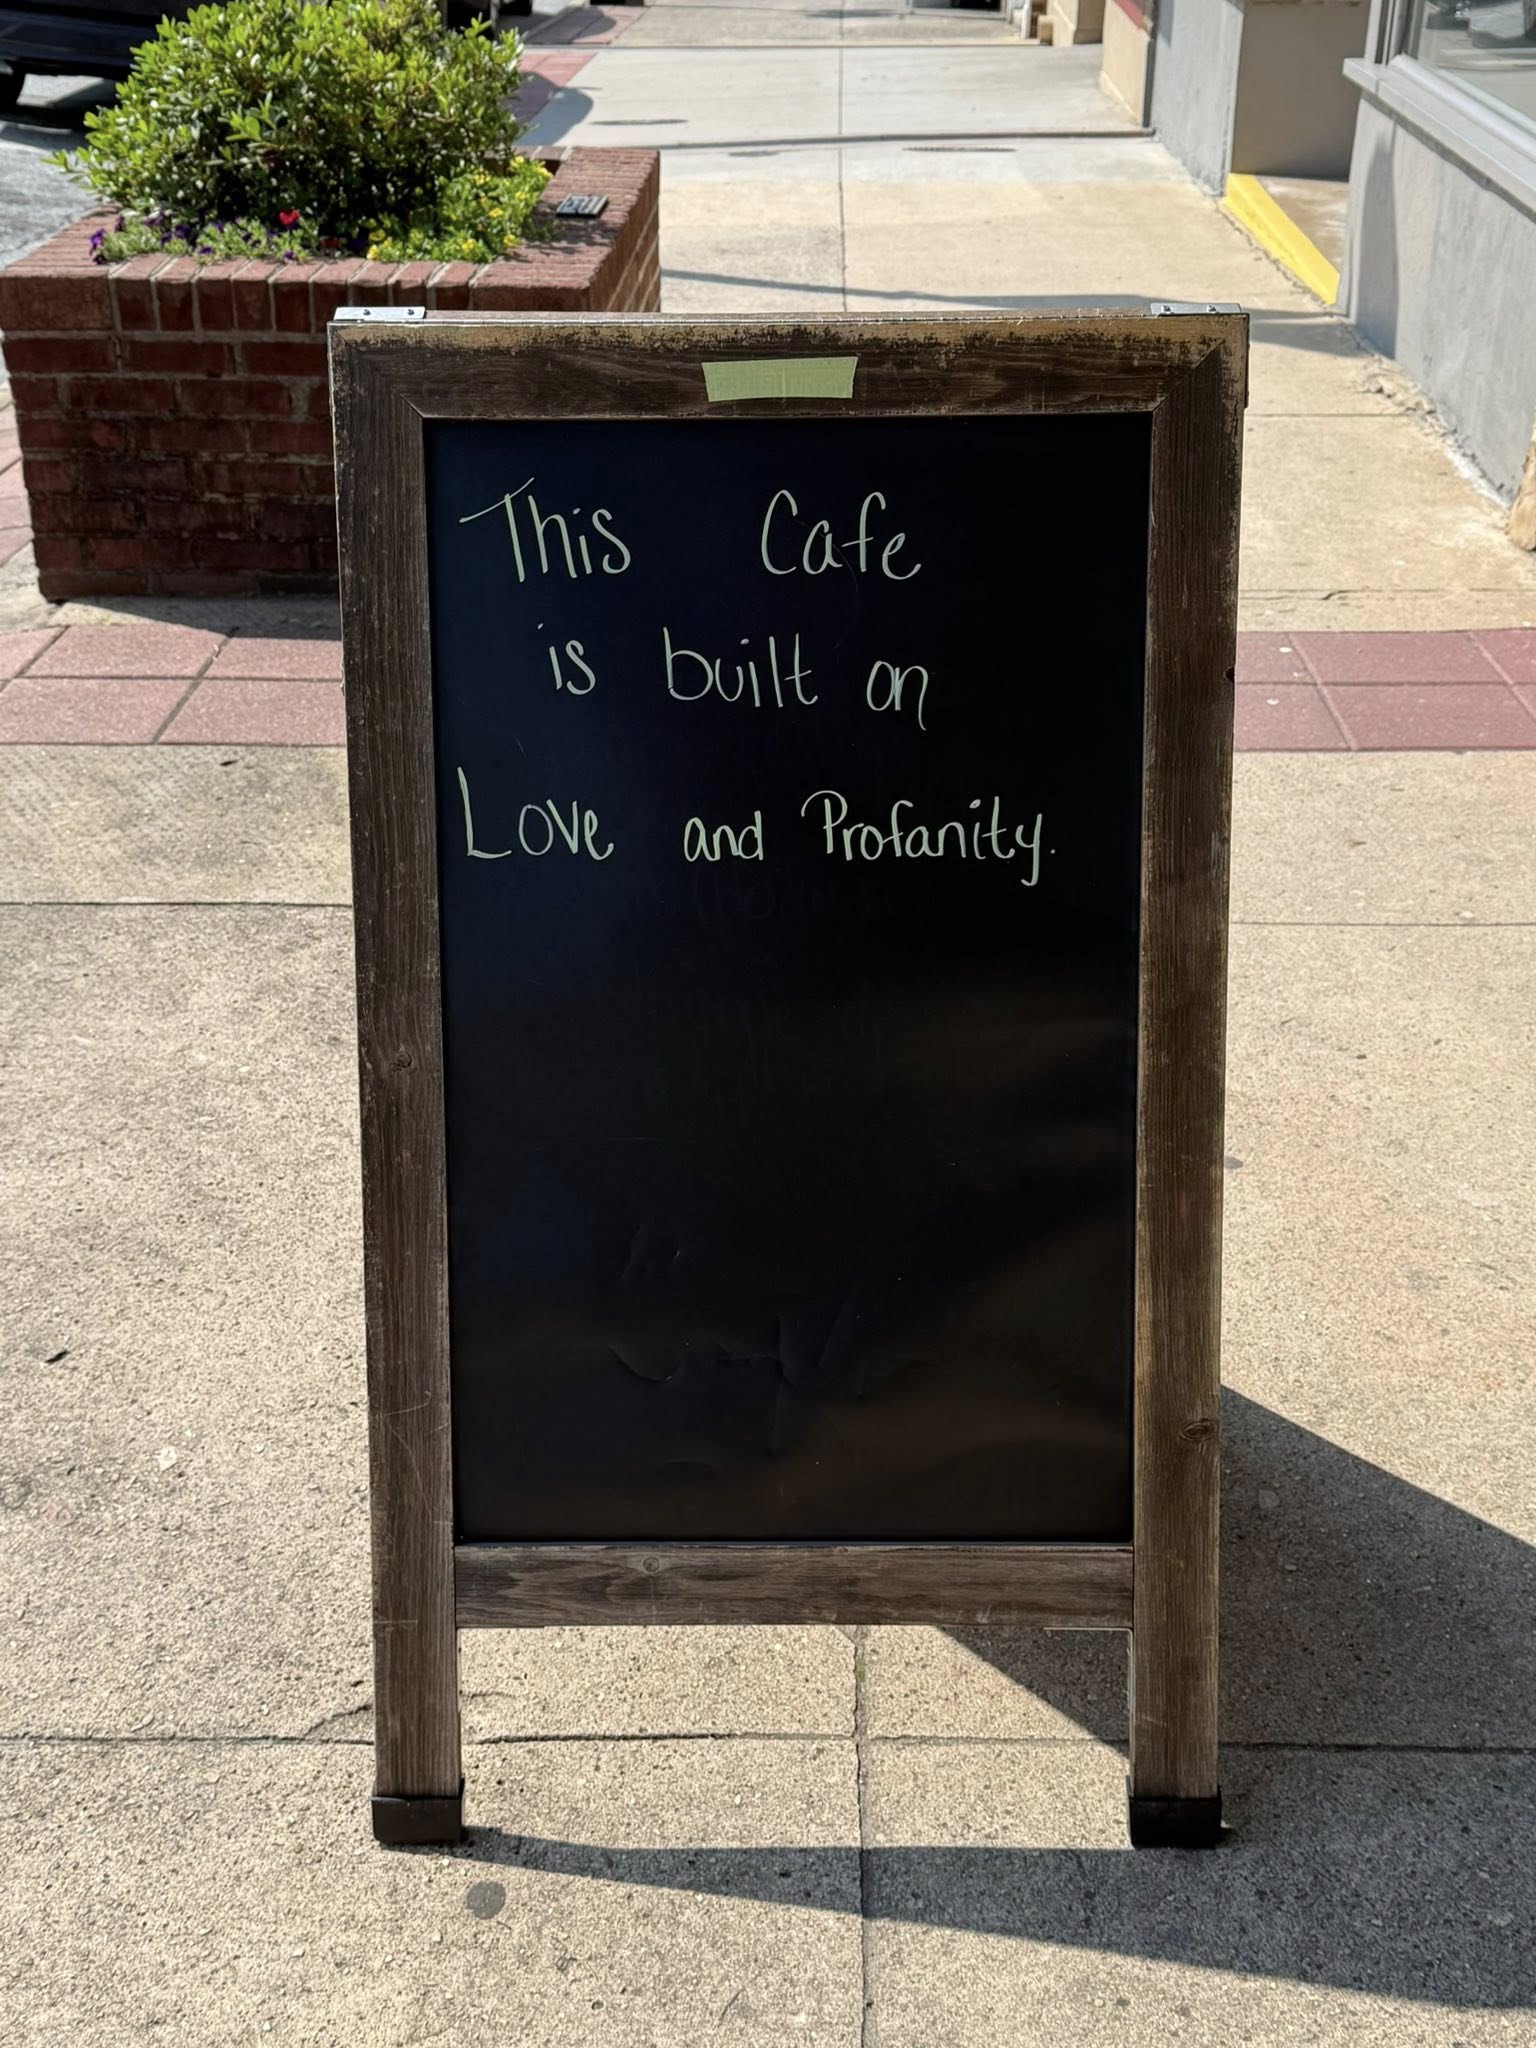 This Cafe
is built on
Love and Profanity.